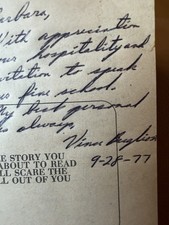 Barbara,
With appreciation
your hospitality and
invitation to speak
fine school.
My best personal
always,
Vince
9-28-77
E STORY YOU
ABOUT TO READ
LL SCARE THE
LL OUT OF YOU